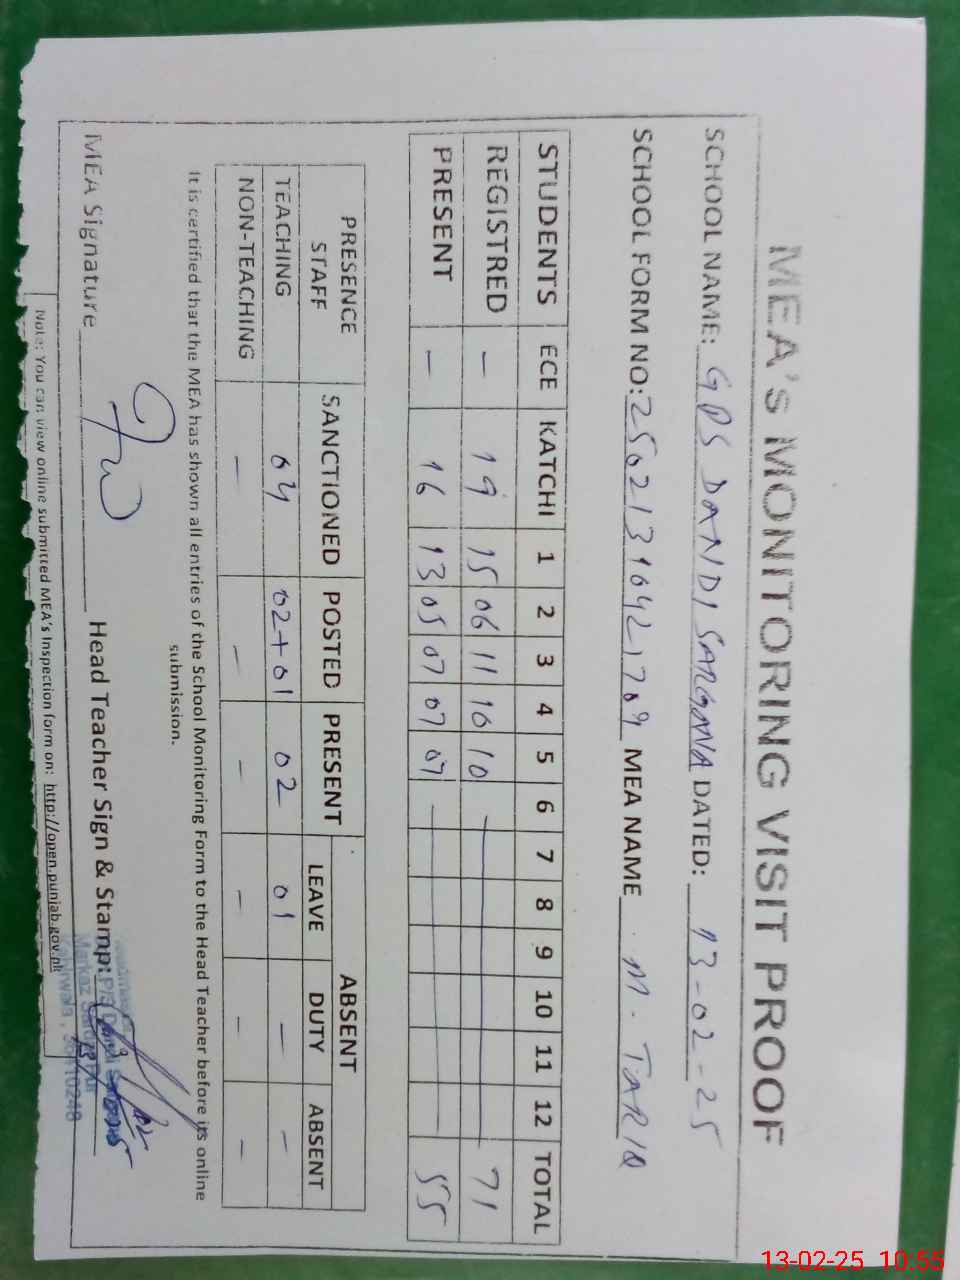 MEA'S MONITORING VISIT PROOF
SCHOOL NAME: GPS DANDI SARGANA DATED: 13-02-25
SCHOOL FORM NO: 2502131642,709 MEA NAME M. TARIQ
STUDENTS ECE KATCHI 1 2 3 4 5 6 7 8 9 10 11 12 TOTAL
REGISTRED — 19 15 06 11 10 10 — 71
PRESENT — 16 13 05 07 07 07 — 55
PRESENCE STAFF SANCTIONED POSTED PRESENT ABSENT
LEAVE DUTY ABSENT
TEACHING 04 02+01 02 01 — —
NON-TEACHING — — — — — —
It is certified that the MEA has shown all entries of the School Monitoring Form to the Head Teacher before its online
submission.
MEA Signature Head Teacher Sign & Stamp:
P/S Dandi Sargana
Markaz
Kabirwala, 36110248
Note: You can view online submitted MEA's Inspection form on: http://open.punjab.gov.pk
13-02-25 10:55